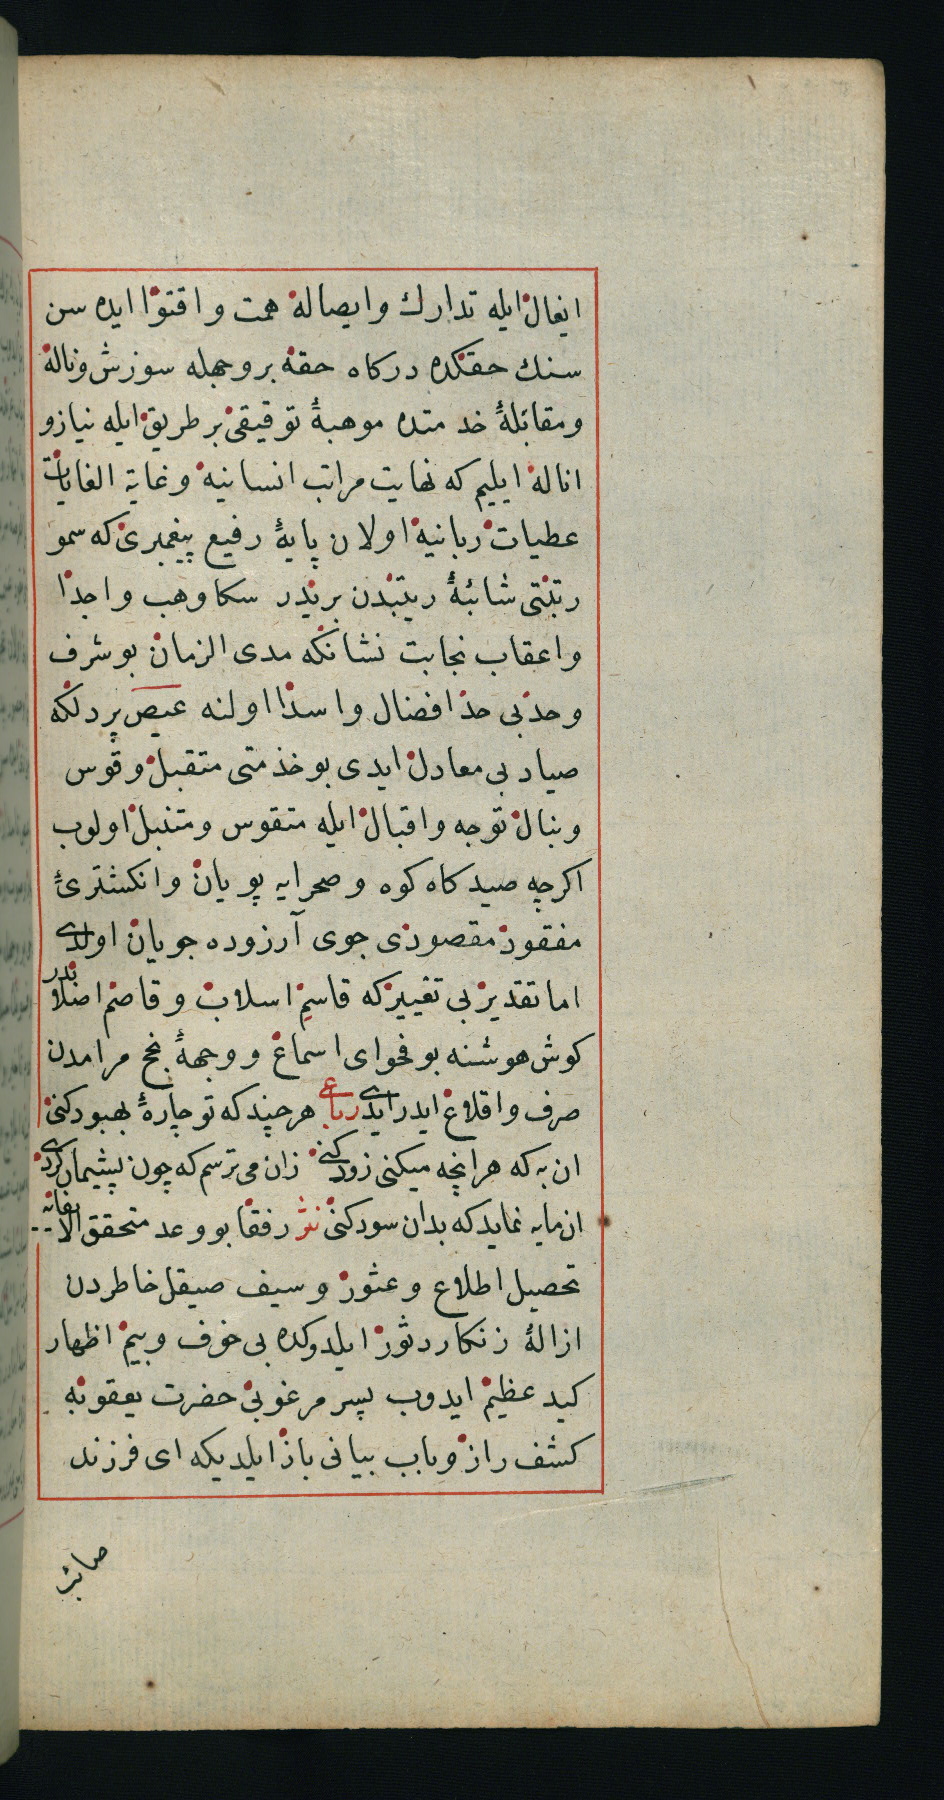 ایغال ایله تدارك وایصاله همت واقتوا ایده سن
سنك حقنكده دركاه حقه بر وجهله سوزش وناله
ومقابلهٔ خدمتده موهبهٔ توقیقی بر طریق ایله نیاز و
اناله ایلیم كه نهایت مراتب انسانیه وغایة الغایات
عطیات ربانیه اولان پایهٔ رفیع پیغمبری كه سمو
رتبتی شائبهٔ ریبتدن بریدر سكا وهب واجدا
واعقاب نجابت نشانكه مدی الزمان بو شرف
وحذبی حذا فضال واسدا اولنه عیص پر دلكه
صیاد بی معادل ایدی بو خدمتی متقبل وقوس
ونبال توجه واقبال ایله متقوس ومتنبل اولوب
اكرچه صیدكاه كوه وصحرایه پویان وانكشتریٔ
مفقود مقصودی جوی آرزوده جویان اولدی
اما تقدیر بی تغییر كه قاسم اسلاب وقاصم اصلابدر
كوش هوشنه بو فحوای اسماع ووجههٔ نجح مرامدن
صرف واقلاع ایدر ایدی رباعی هرچند كه تو چارهٔ بهبود كنی
ان به كه هرانچه میكنی زود كنی زان می ترسم كه چون پشیمان كردی
ان مایه نماید كه بدان سود كنی نثر رفقا بو وعد متحقق الایفایه
تحصیل اطلاع وعثور وسیف صیقل خاطردن
ازالهٔ زنكار دثور ایلدوكده بی خوف وبیم اظهار
كید عظیم ایدوب پسر مرغوبی حضرت یعقوبه
كشف راز وباب بیانی باز ایلدیكه ای فرزند
صائب